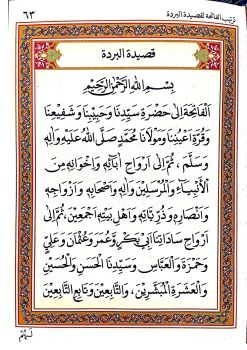 ترتيب الفاتحة لقصيدة البردة
٦٣
قصيدة البردة
بِسْمِ اللهِ الرَّحْمٰنِ الرَّحِيْمِ
اَلْفَاتِحَةَ اِلٰى حَضْرَةِ سَيِّدِنَا وَحَبِيْبِنَا وَشَفِيْعِنَا
وَقُرَّةِ اَعْيُنِنَا وَمَوْلَانَا مُحَمَّدٍ صَلَّى اللهُ عَلَيْهِ وَاٰلِهِ
وَسَلَّمَ ، ثُمَّ اِلٰى اَرْوَاحِ اٰبَآئِهِ وَاِخْوَانِهِ مِنَ
الْاَنْبِيَآءِ وَالْمُرْسَلِيْنَ وَاٰلِهِ وَاَصْحَابِهِ وَاَزْوَاجِهِ
وَاَنْصَارِهِ وَذُرِّيَّاتِهِ وَاَهْلِ بَيْتِهِ اَجْمَعِيْنَ، ثُمَّ اِلٰى
اَرْوَاحِ سَادَاتِنَا اَبِيْ بَكْرٍ وَّعُمَرَ وَعُثْمَانَ وَعَلِيٍّ
وَحَمْزَةَ وَالْعَبَّاسِ وَسَيِّدِنَا الْحَسَنِ وَالْحُسَيْنِ
وَالْعَشَرَةِ الْمُبَشَّرِيْنَ، وَالتَّابِعِيْنَ وَتَابِعِ التَّابِعِيْنَ